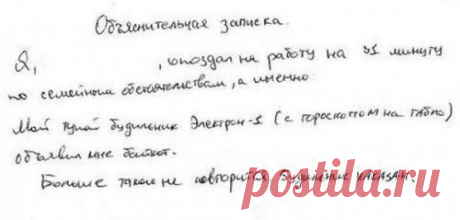 Объяснительная записка.
Я, , опоздал на работу на 31 минуту
по семейным обстоятельствам, а именно
Мой тупой будильник Электрон-1 (с гороскопом на табло)
объявил мне бойкот.
Больше такого не повторится. Будильник наказан.
postila.ru